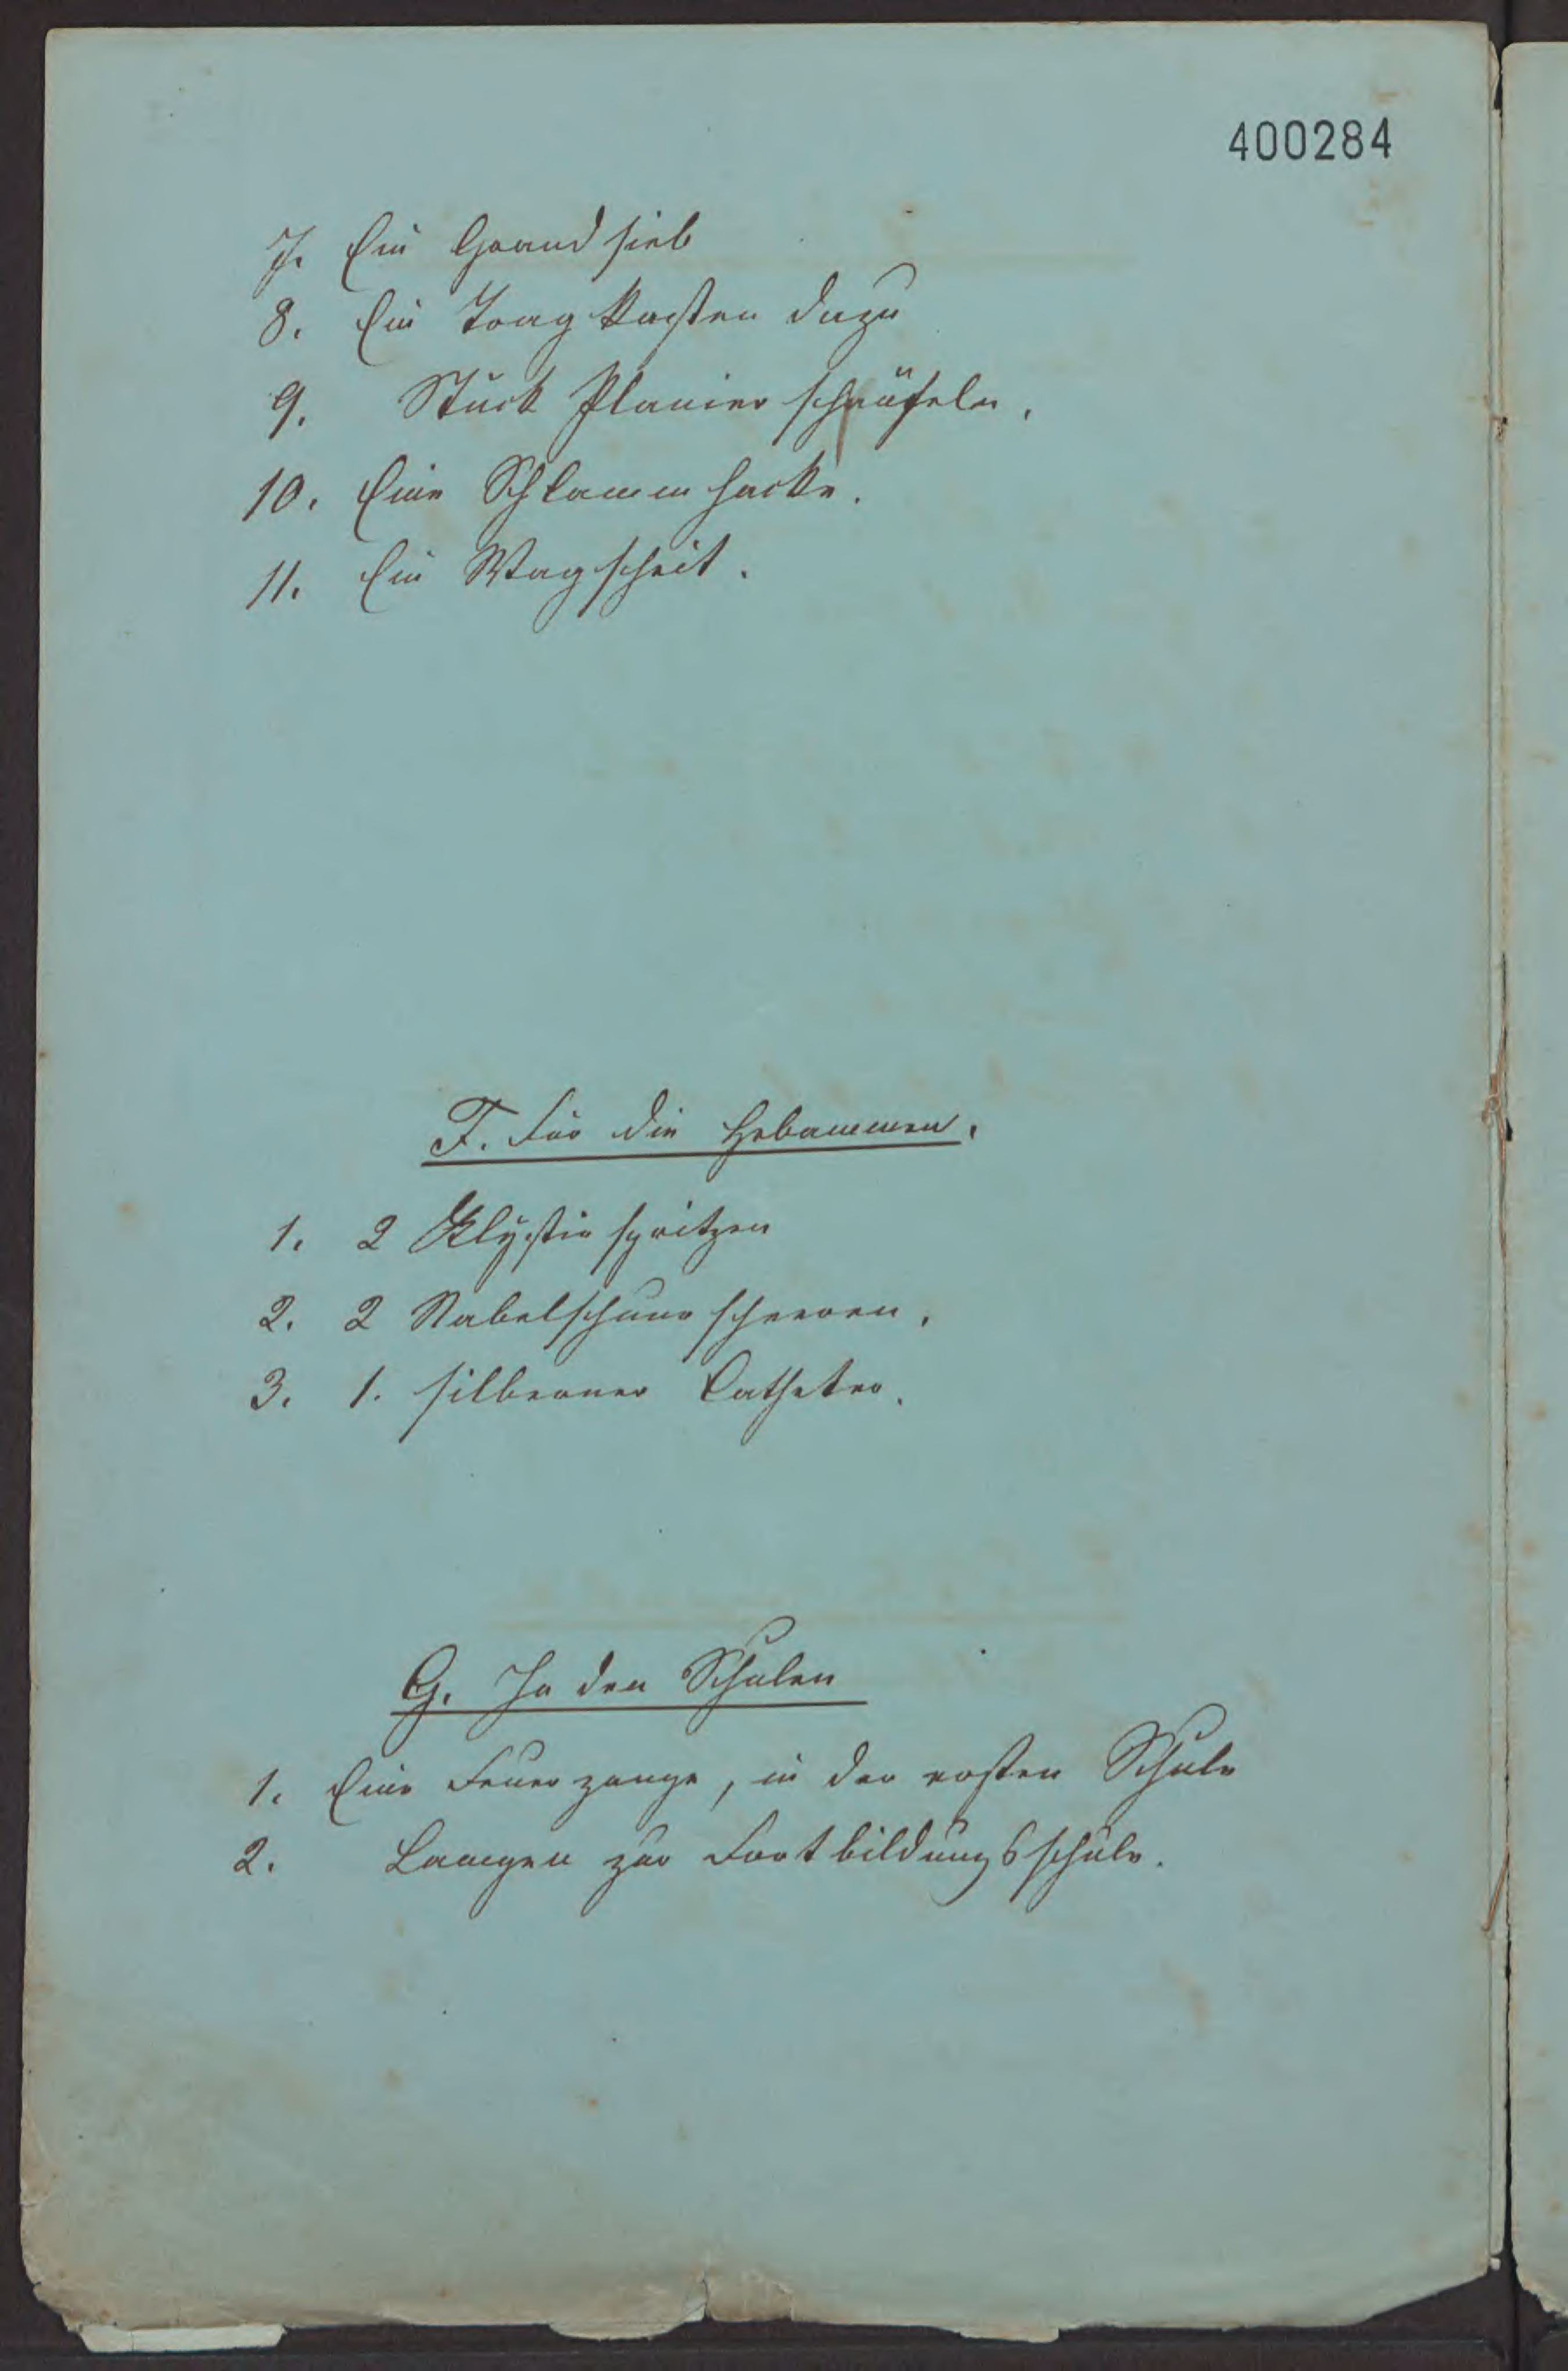 400284
7. Ein Grandsieb
8. Ein Tragkasten dazu
9. Stück Planierschäufeln.
10. Eine Schlammhacke.
11. Ein Wagscheit.
F. Für die Hebammen.
1. 2 Klystirspritzen
2. 2 Nabelschnurscheeren.
3. 1. silberner Catheter.
G. In den Schulen
1. Eine Feuerzange, in der ersten Schule
2. Lampen zur Fortbildungsschule.